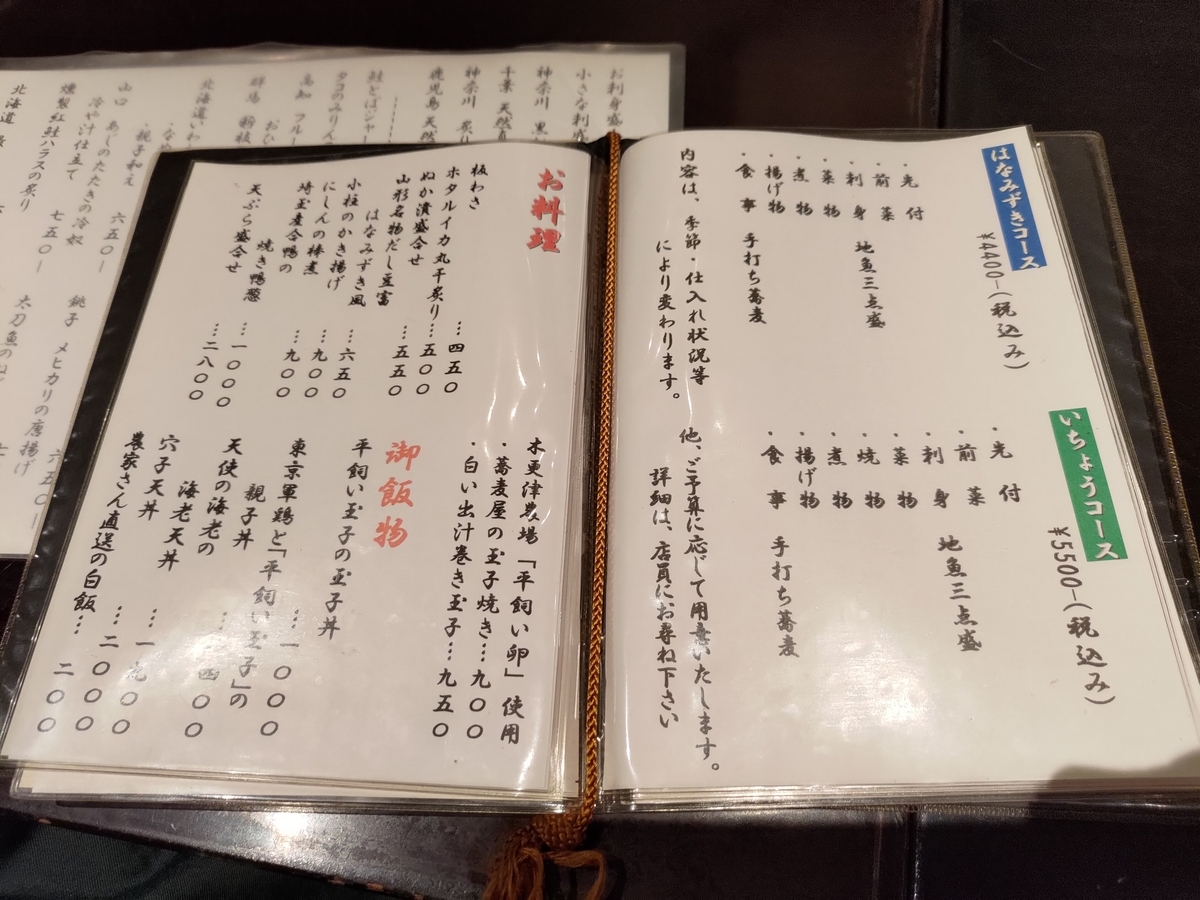 はなみずきコース
¥4400-(税込み)
・先付
・前菜
・刺身 地魚三点盛
・菜物
・煮物
・揚げ物
・食事 手打ち蕎麦
内容は、季節・仕入れ状況等
により変わります。
いちょうコース
¥5500-(税込み)
・先付
・前菜
・刺身 地魚三点盛
・菜物
・焼物
・煮物
・揚げ物
・食事 手打ち蕎麦
他、ご予算に応じて用意いたします。
詳細は、店員にお尋ね下さい
お料理
板わさ …四五〇
ホタルイカ丸干炙り…五〇〇
ぬか漬盛合せ …五五〇
山形名物だし豆富
はなみずき風 …六五〇
小柱のかき揚げ …九〇〇
にしんの棒煮 …九〇〇
埼玉産合鴨の
焼き鴨葱 …一〇〇〇
天ぷら盛合せ …二八〇〇
木更津農場「平飼い卵」使用
・蕎麦屋の玉子焼き…九〇〇
・白い出汁巻き玉子…九五〇
御飯物
平飼い玉子の玉子丼
…一〇〇〇
東京軍鶏と「平飼い玉子」の
親子丼 四〇〇
天使の海老の
海老天丼 …一九〇〇
穴子天丼 …二〇〇〇
農家さん直送の白飯…二〇〇
お刺身盛
小さな刺盛
神奈川 黒
千葉 天然真
神奈川 炙り
鹿児島天然
鮭とばジャー
タコのみりん
高知 フルー
おひ
群馬
北海道
・親子和え 六五〇ー
山口 あじのたたきの冷奴
冷や汁仕立て 七五〇ー
燻製紅鮭ハラスの炙り
北海道
銚子 メヒカリの唐揚げ
六五〇ー
太刀魚の